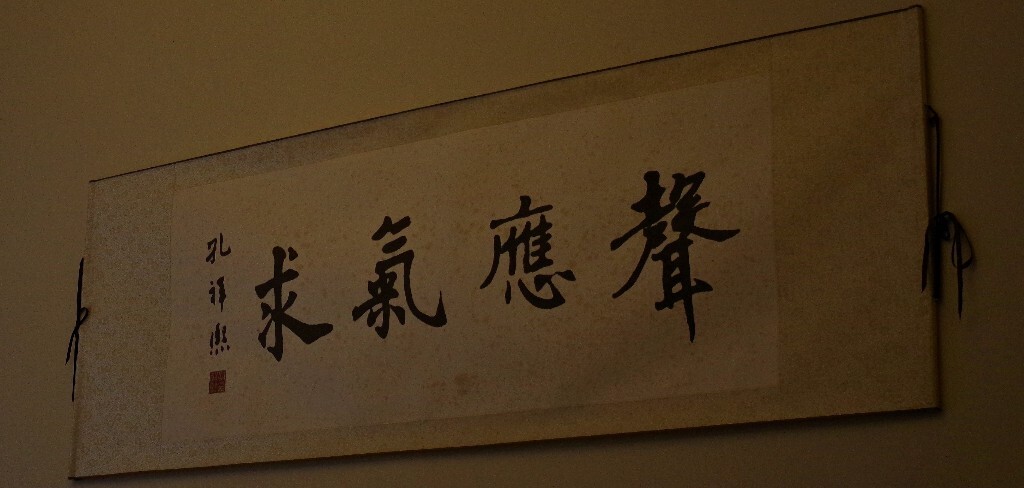 聲應氣求
孔祥熙